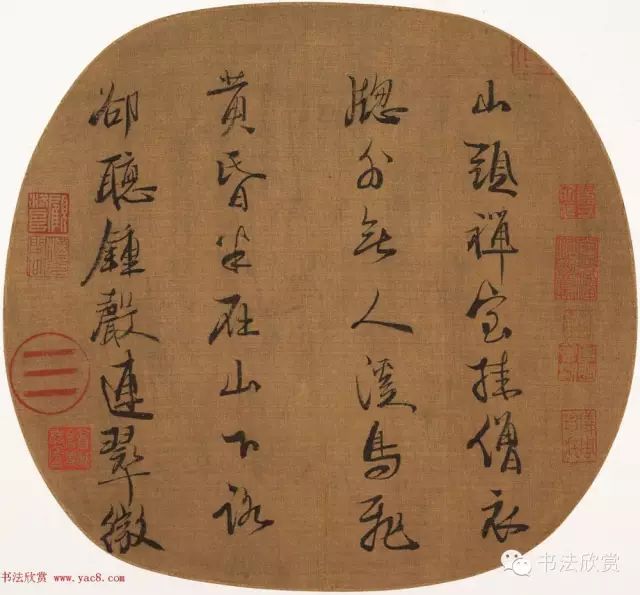 山頭禪室挂僧衣
窻外無人溪鳥飛
黃昏半在山下路
卻聽鍾聲連翠微
书法欣赏
书法欣赏 www.yac8.com